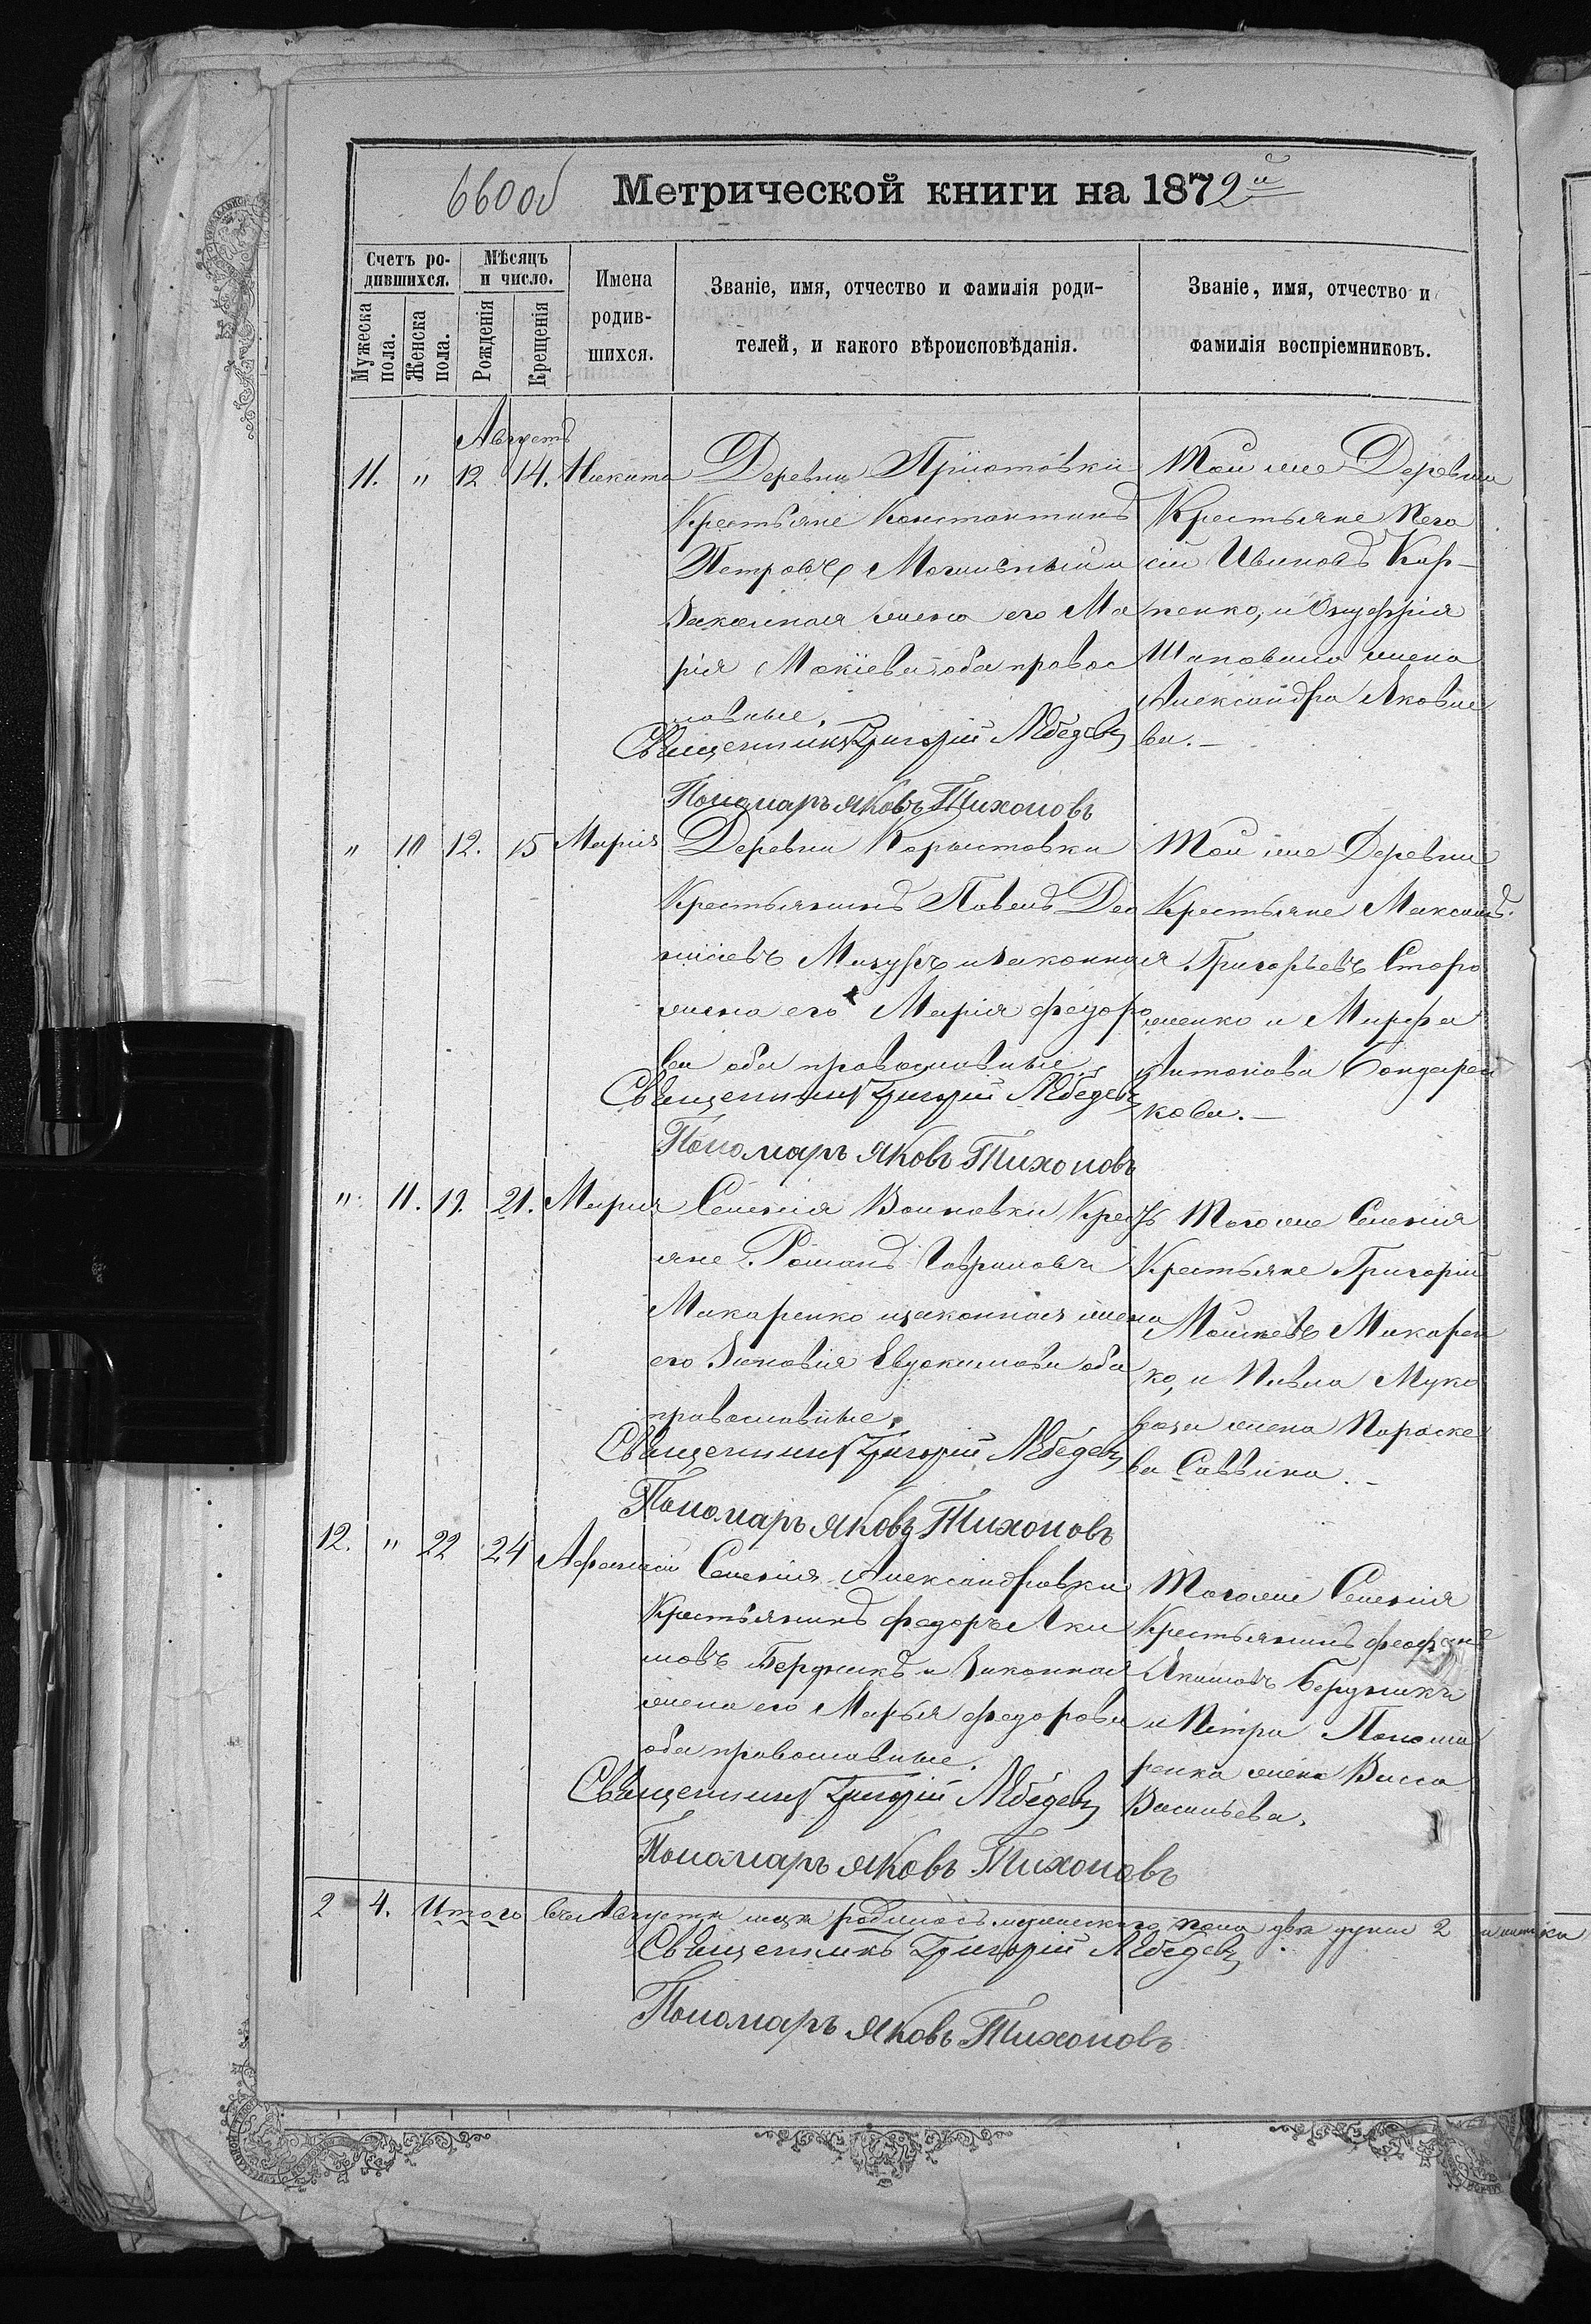 660 об
Метрической книги на 1872й
Счетъ ро-
дившихся.
Мужеска
пола.
Женска
пола.
Мѣсяцъ
и число.
Рожденія
Крещенія
Имена
родив-
шихся.
Званіе, имя, отчество и фамилія роди-
телей, и какого вѣроисповѣданія.
Званіе, имя, отчество и
фамилія воспріемниковъ.
Августъ
11. " 12 14. Никита
Деревни
Крестьяне Константинъ
Петровъ и
Законная жена его Ма
рія Мокіева оба правос
лавные.
Священникъ Григорій Лебедевъ
Пономарь Яковъ Тихоновъ
Той же Деревни
Крестьяне
Ивановъ Кар-
пенко, и
жена
Александра Яковле
ва.—
" 10 12. 15 Марія
Деревни Корыстовки
Крестьянинъ Павелъ Део
нисіевъ Мазуръ и законная
жена его Марія Федоро
ва оба православные.
Священникъ Григорій Лебедевъ
Пономарь Яковъ Тихоновъ
Той же Деревни
Крестьяне Максимъ
Григорьевъ Сторо
женко и Марфа
Антонова Бондарен
кова.—
" 11. 19. 21. Марія
Селенія Войновки Кресть
яне Романъ Гавриловъ
Макаренко и законная жена
его Зиновія Евдокимова оба
православные.
Священникъ Григорій Лебедевъ
Пономарь Яковъ Тихоновъ
Того же Селенія
Крестьяне Григорій
Макарен
ко, и Павла Муко
воза жена Параске
ва Саввина.—
12. " 22 24 Афанасій
Селенія Александровки
Крестьянинъ Федоръ Яки
мовъ Бердникъ и Законная
жена его Марья Федорова
оба православные.
Священникъ Григорій Лебедевъ
Пономарь Яковъ Тихоновъ
Того же Селенія
Крестьянинъ Феофанъ
Якимовъ Бердникъ
и Петра Понома
ренка жена Васса
Васильева.
2 4. Итого въ Августѣ мцѣ родилось мужескаго пола двѣ души 2
Священникъ Григорій Лебедевъ
Пономарь Яковъ Тихоновъ